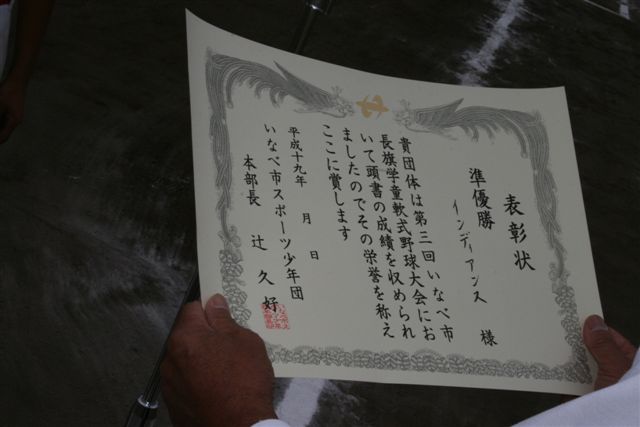 表彰状
準優勝
インディアンス 様
貴団体は第三回いなべ市
長旗学童軟式野球大会にお
いて頭書の成績を収められ
ましたのでその栄誉を称え
ここに賞します
平成十九年 月 日
いなべ市スポーツ少年団
本部長 辻 久好